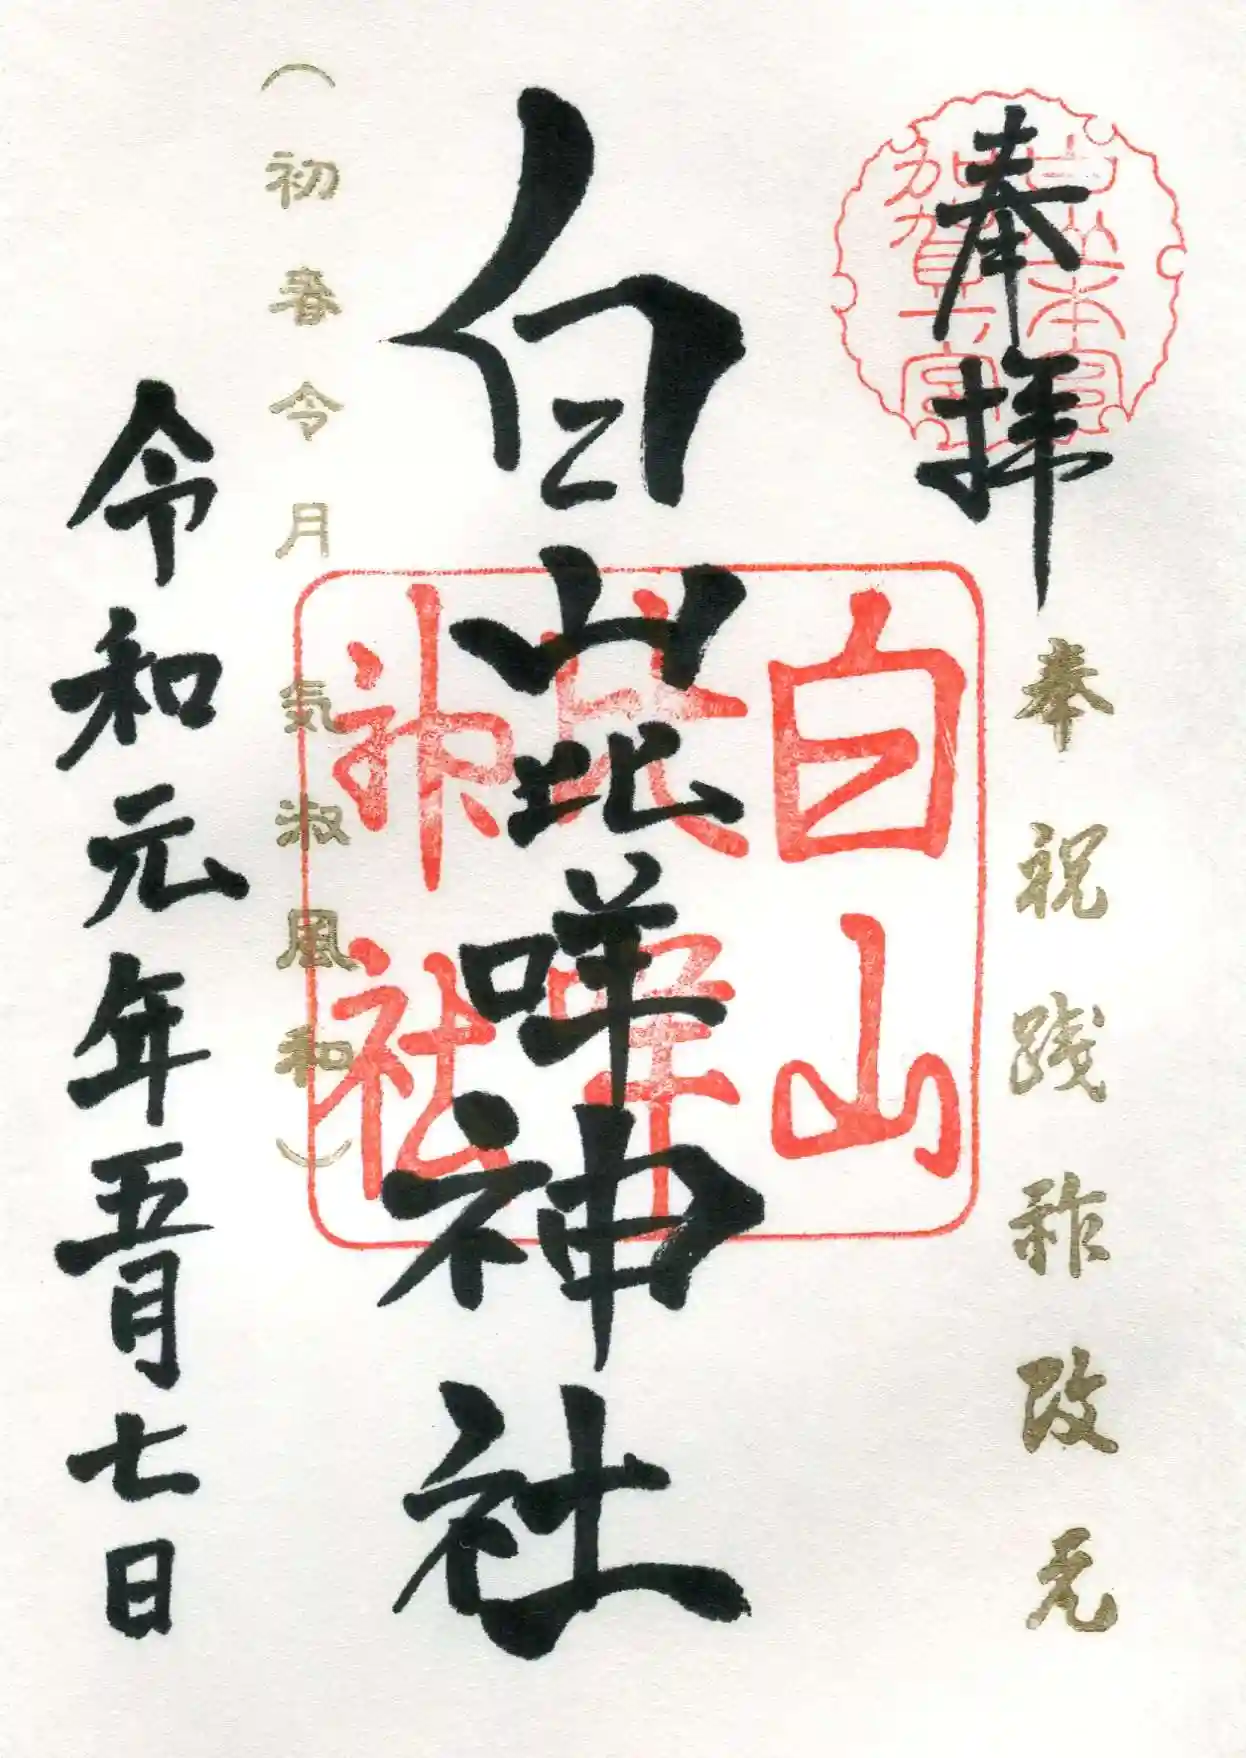 奉拝
白山本宮
加賀一ノ宮
奉祝践祚改元
白山比咩神社
白山
比咩
神社
(初春令月 気淑風和)
令和元年五月七日